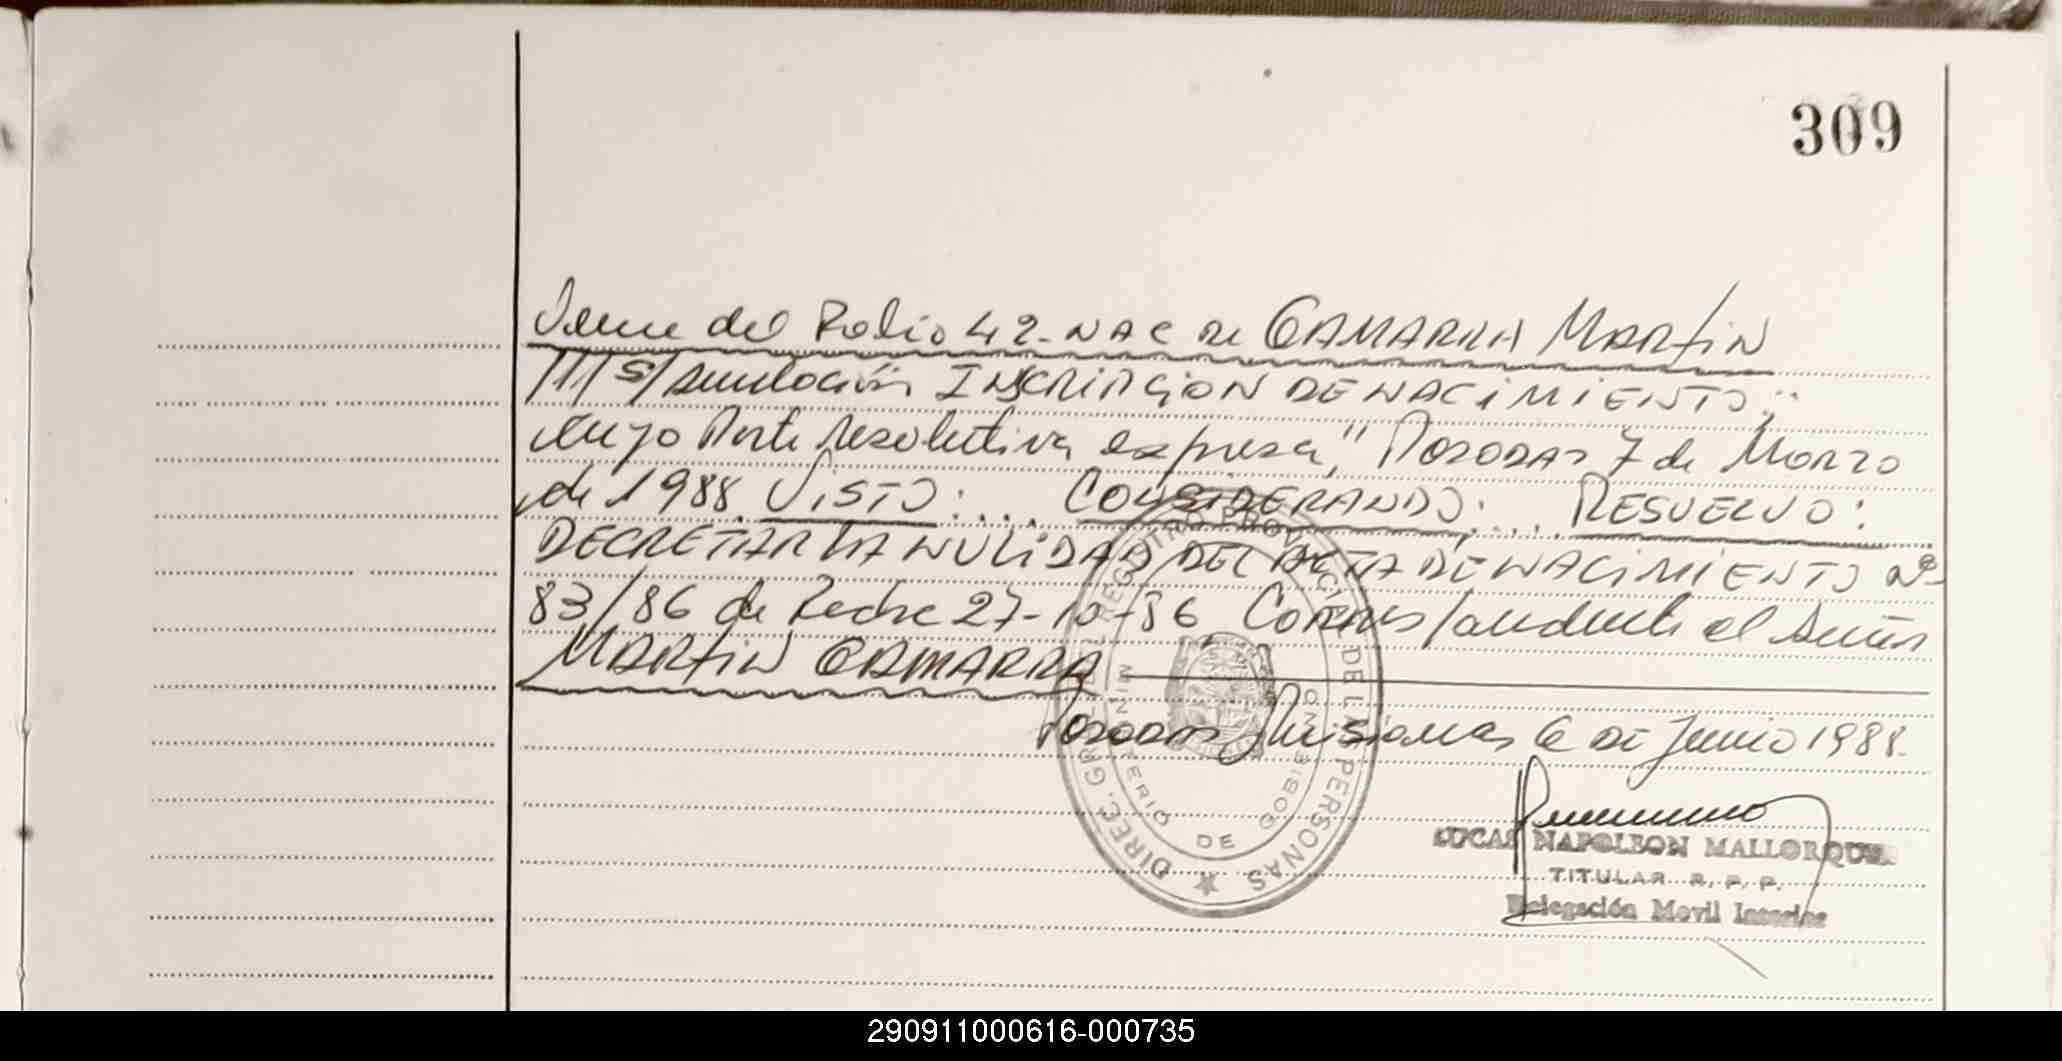 309
Viene del Folio 42- NAC de GAMARRA MARTIN
///S/Anulación INSCRIPCION DE NACIMIENTO:
cuya Parte resolutiva expresa," POSADAS 7 de Marzo
de 1988. VISTO: ... CONSIDERANDO: ... RESUELVO:
DECRETAR LA NULIDAD DEL ACTA DE NACIMIENTO Nº
83/86 de Fecha 27-10-86 Correspondiente al Señor
MARTIN GAMARRA
Posadas, Misiones 6 DE Junio 1988.
LUCAS NAPOLEON MALLORQUIN
TITULAR R. P. P.
Delegación Movil Interior
DIREC. GRAL. DEL REGISTRO PROVINCIAL DE LAS PERSONAS
MINISTERIO DE GOBIERNO
290911000616-000735